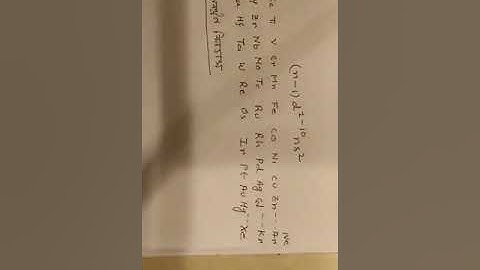 (n-1) d¹⁻¹⁰ ns²
Ne
Ti V Cr Mn Fe Co Ni Cu Zn ... Ar
Y Zr Nb Mo Tc Ru Rh Pd Ag Cd ... Kr
Hf Ta W Re Os Ir Pt Au Hg ... Xe